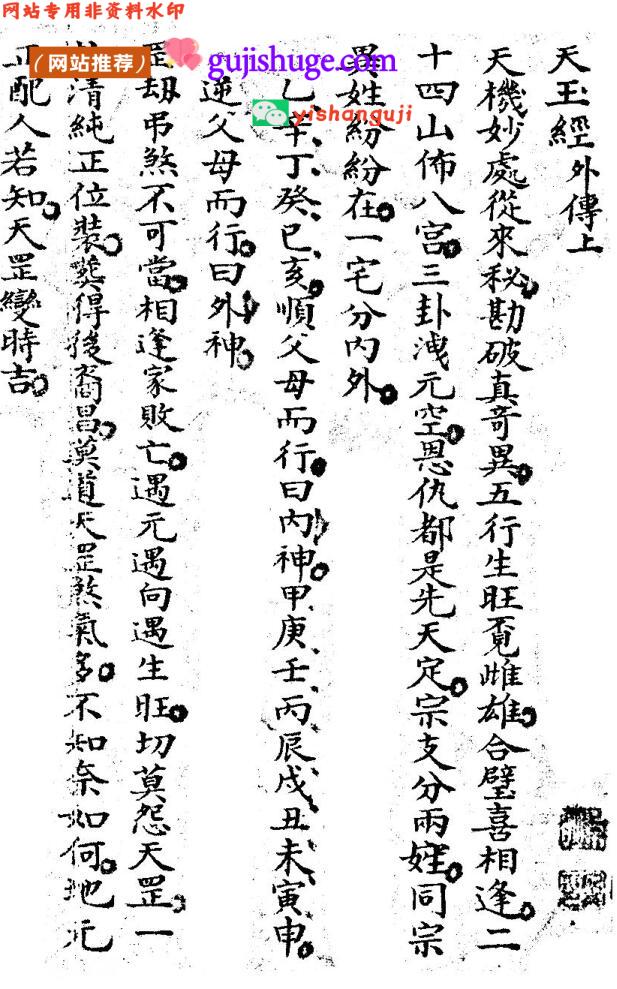 网站专用非资料水印
(网站推荐) gujishuge.com
yishanguji
天玉經外傳上
天機妙處從來秘。勘破真奇異。五行生旺覓雌雄。合璧喜相逢。二
十四山佈八宮。三卦洩元空。恩仇都是先天定。宗支分兩姓。同宗
異姓紛紛在。一宅分內外。
乙、辛、丁、癸、巳、亥。順父母而行曰內神。甲、庚、壬、丙、辰、戌、丑、未、寅、申。
逆父母而行。曰外神。
罡劫弔煞不可當。相逢家敗亡。遇元遇向遇生旺。切莫怨天罡。一
清純正位裝。葬得後裔昌。莫道天罡煞氣多。不知奈如何。地元
正配人若知。天罡變時吉。